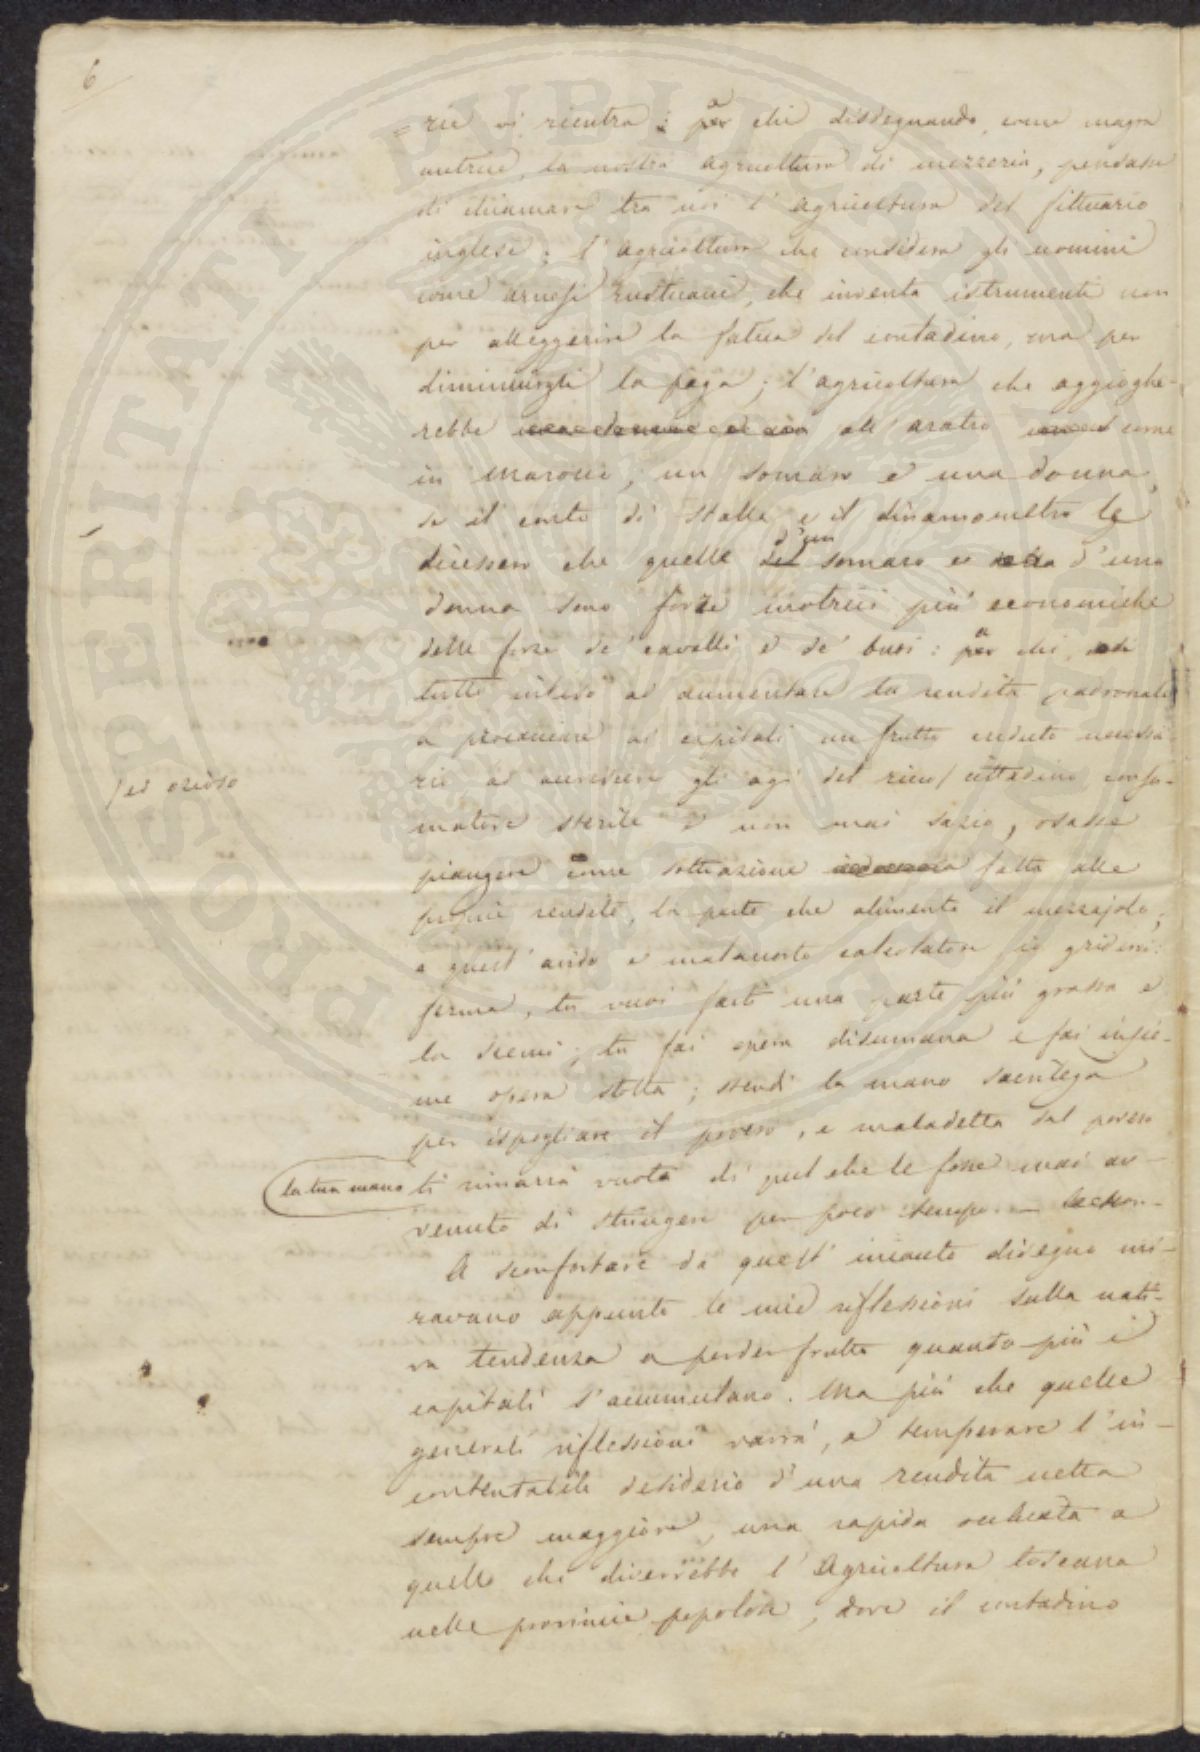 6
rie vi rientra: a chi disdegnando, come magra
nutrice, la nostra agricoltura di mezzeria, pensasse
di chiamare tra noi l'agricoltura del fittuario
inglese; l'agricoltura che considera gli uomini
come arnesi rusticani, che inventa istrumenti non
per alleggerire la fatica del contadino, ma per
diminuirgli la paga; l'agricoltura che aggioghe-
rebbe all'aratro come
in Marocco, un somaro e una donna,
se il conto di stalla e il dinamometro le
dicessero che quelle d'un somaro e d'una
donna sono forze motrici più economiche
delle forze de' cavalli e de' buoi: a chi
tutto inteso ad aumentare la rendita padronale
a procacciare ai capitali un frutto creduto necessa-
rio ad accrescere gli agi del ricco/ cittadino consu-
/ed ozioso
matore sterile e non mai sazio, osasse
piangere come sottrazione fatta alle
proprie rendite, la parte che alimenta il mezzajolo;
a quest'avido e malaccorto calcolatore io griderei:
ferma, tu vuoi farti una parte più grassa e
la scemi; tu fai opera disumana e fai insie-
me opera stolta; stendi la mano sacrilega
per ispogliare il povero, e maladetta dal povero
la tua mano ti rimarrà vuota di quel che le fosse mai av-
venuto di stringere per poco tempo.
A sconfortare da quest'incauto disegno mi-
ravano appunto le mie riflessioni sulla nati-
va tendenza a perder frutto quanto più i
capitali s'accumulano. Ma più che quelle
generali riflessioni varrà, a temperare l'in-
contentabile desiderio d'una rendita netta
sempre maggiore, una rapida occhiata a
quello che diverrebbe l'Agricoltura toscana
nelle provincie popolose, dove il contadino